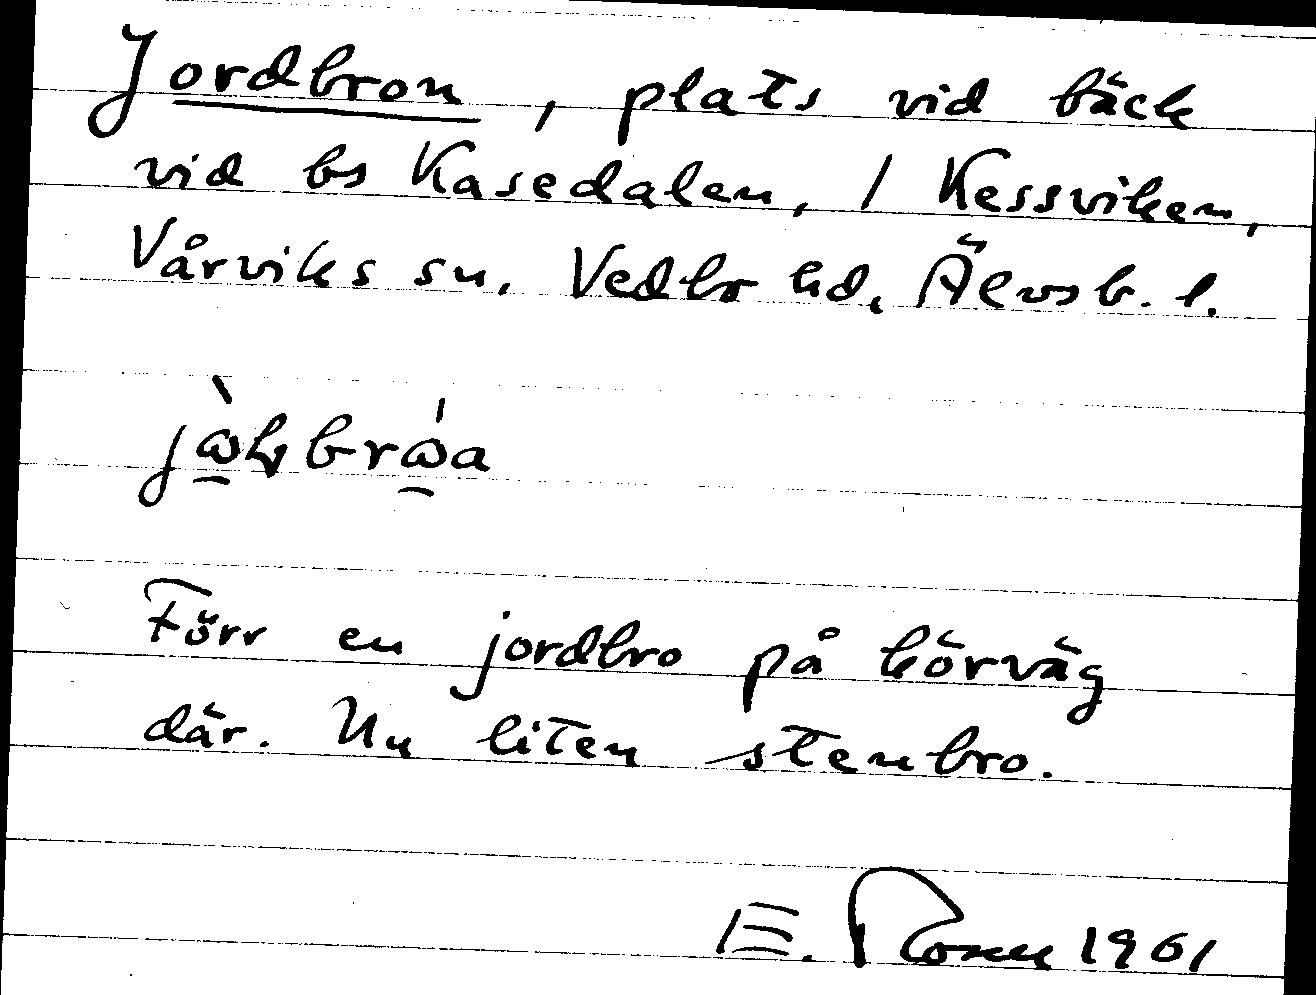 Jordbron, plats vid bäck
vid bs Kasedalen, / Kessviken,
Vårviks sn. Vedbr hd, Älvsb. l.
Förr en jordbro på körväg
där. Nu liten stenbro.
E. Rosell 1961